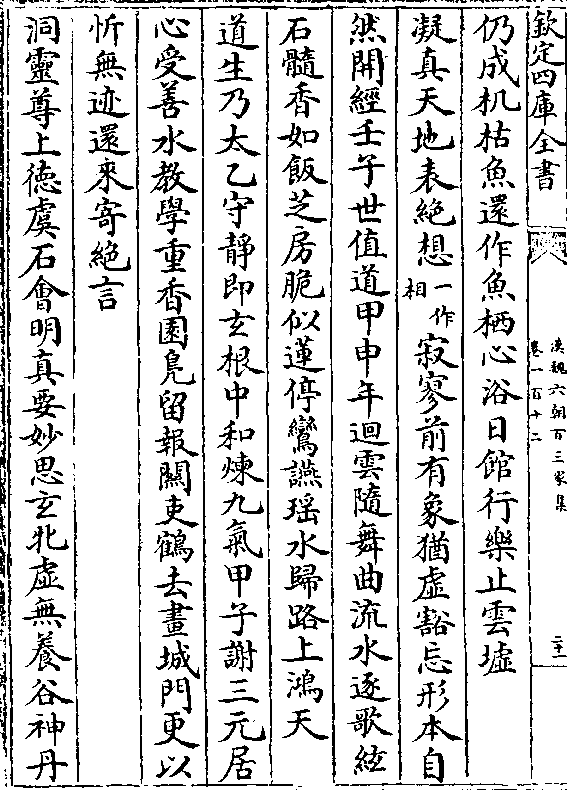 欽定四庫全書
漢魏六朝百三家集
卷一百十二
二十一
仍成机枯魚還作魚栖心浴日館行樂止雲墟
凝真天地表絶想一作相寂寥前有象猶虚豁忘形本自
然開經壬子世值道甲申年迴雲隨舞曲流水逐歌絃
石髓香如飯芝房脆似蓮停鸞讌瑶水歸路上鴻天
道生乃太乙守靜即玄根中和煉九氣甲子謝三元居
心受善水教學重香園鳬留報關吏鶴去畫城門更以
忻無迹還來寄絶言
洞靈尊上徳虞石會明真要妙思玄牝虚無養谷神丹